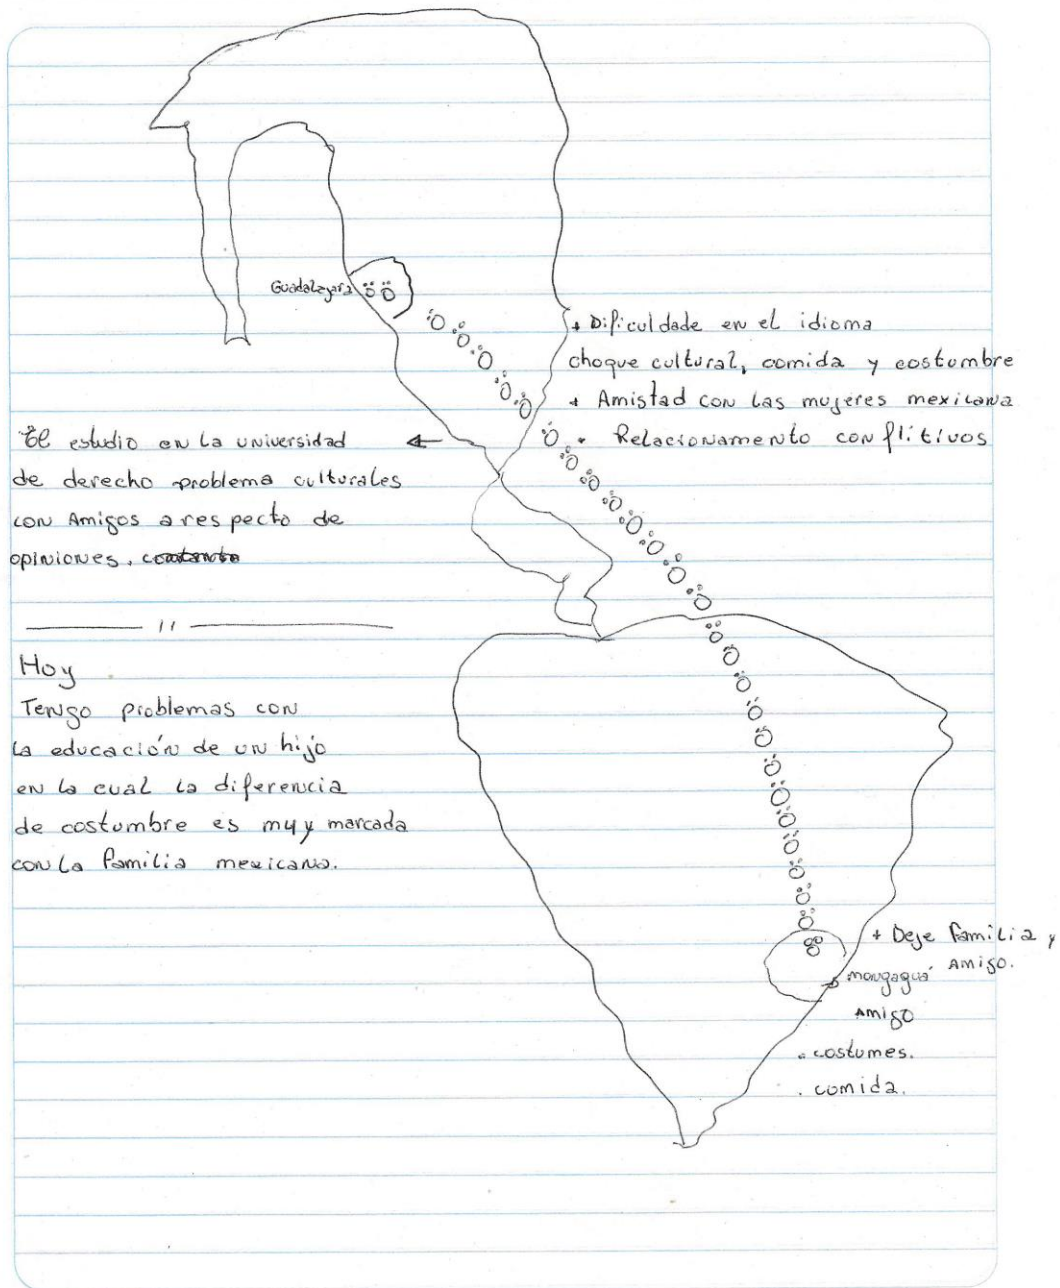 Guadalajara
+ Dificuldade en el idioma
choque cultural, comida y costumbre
+ Amistad con las mujeres mexicana
• Relacionamento conflitivos
El estudio en la universidad
de derecho problema culturales
con Amigos a respecto de
opiniones.
Hoy
Tengo problemas con
la educación de un hijo
en la cual la diferencia
de costumbre es muy marcada
con la familia mexicana.
+ Deje familia y
Amigo.
mongaguá
Amigo
. costumes.
. comida.